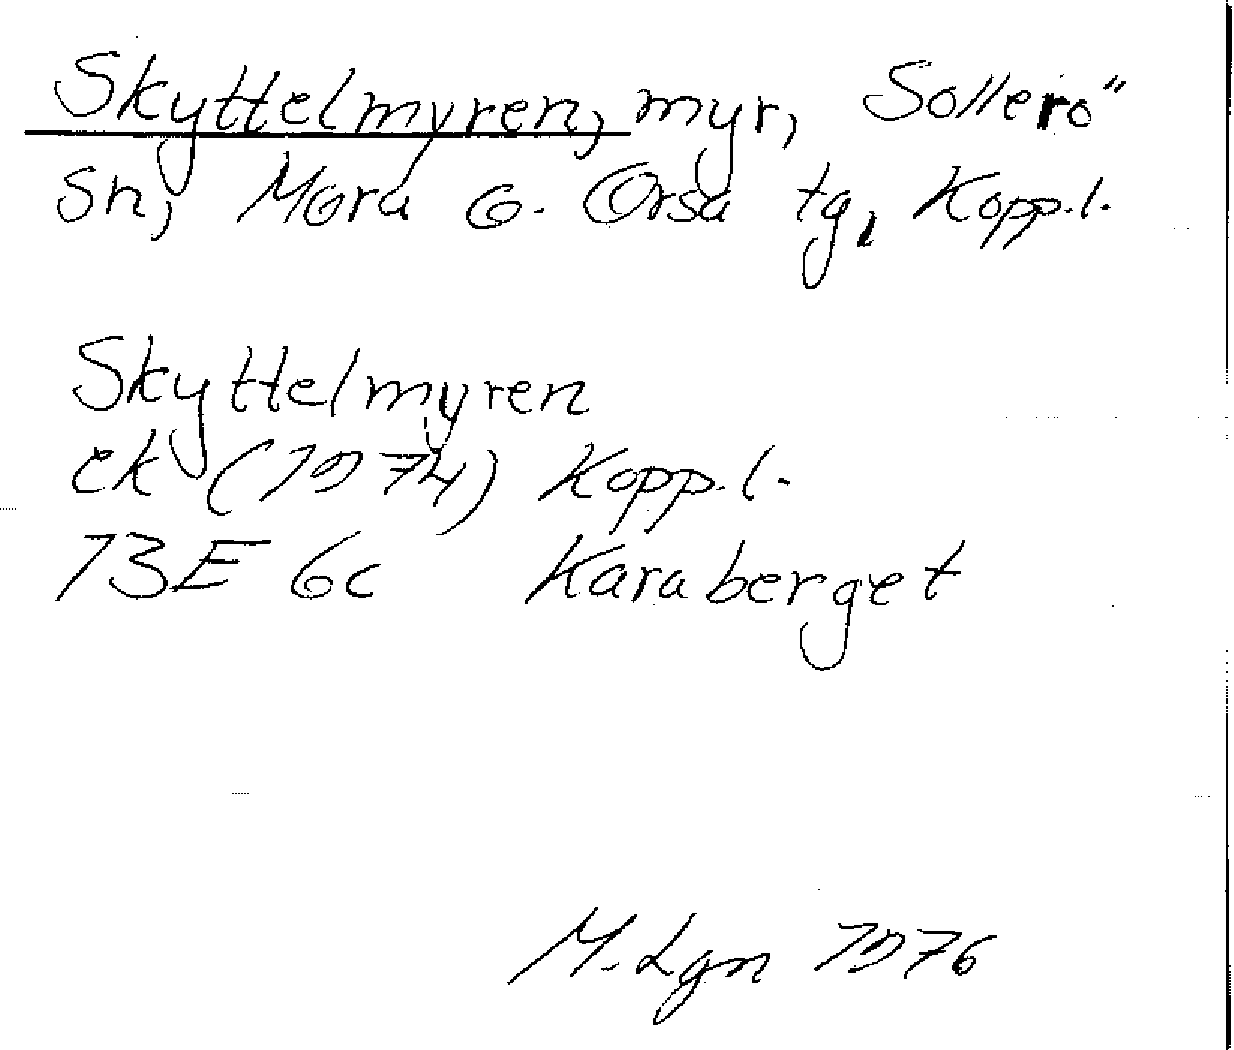 Skyttelmyren, myr, Sollerö
sn, Mora o. Orsa tg, Kopp.l.
Skyttelmyren
ek (1974) Kopp.l.
13E 6c Karaberget
M. Lgn 1976